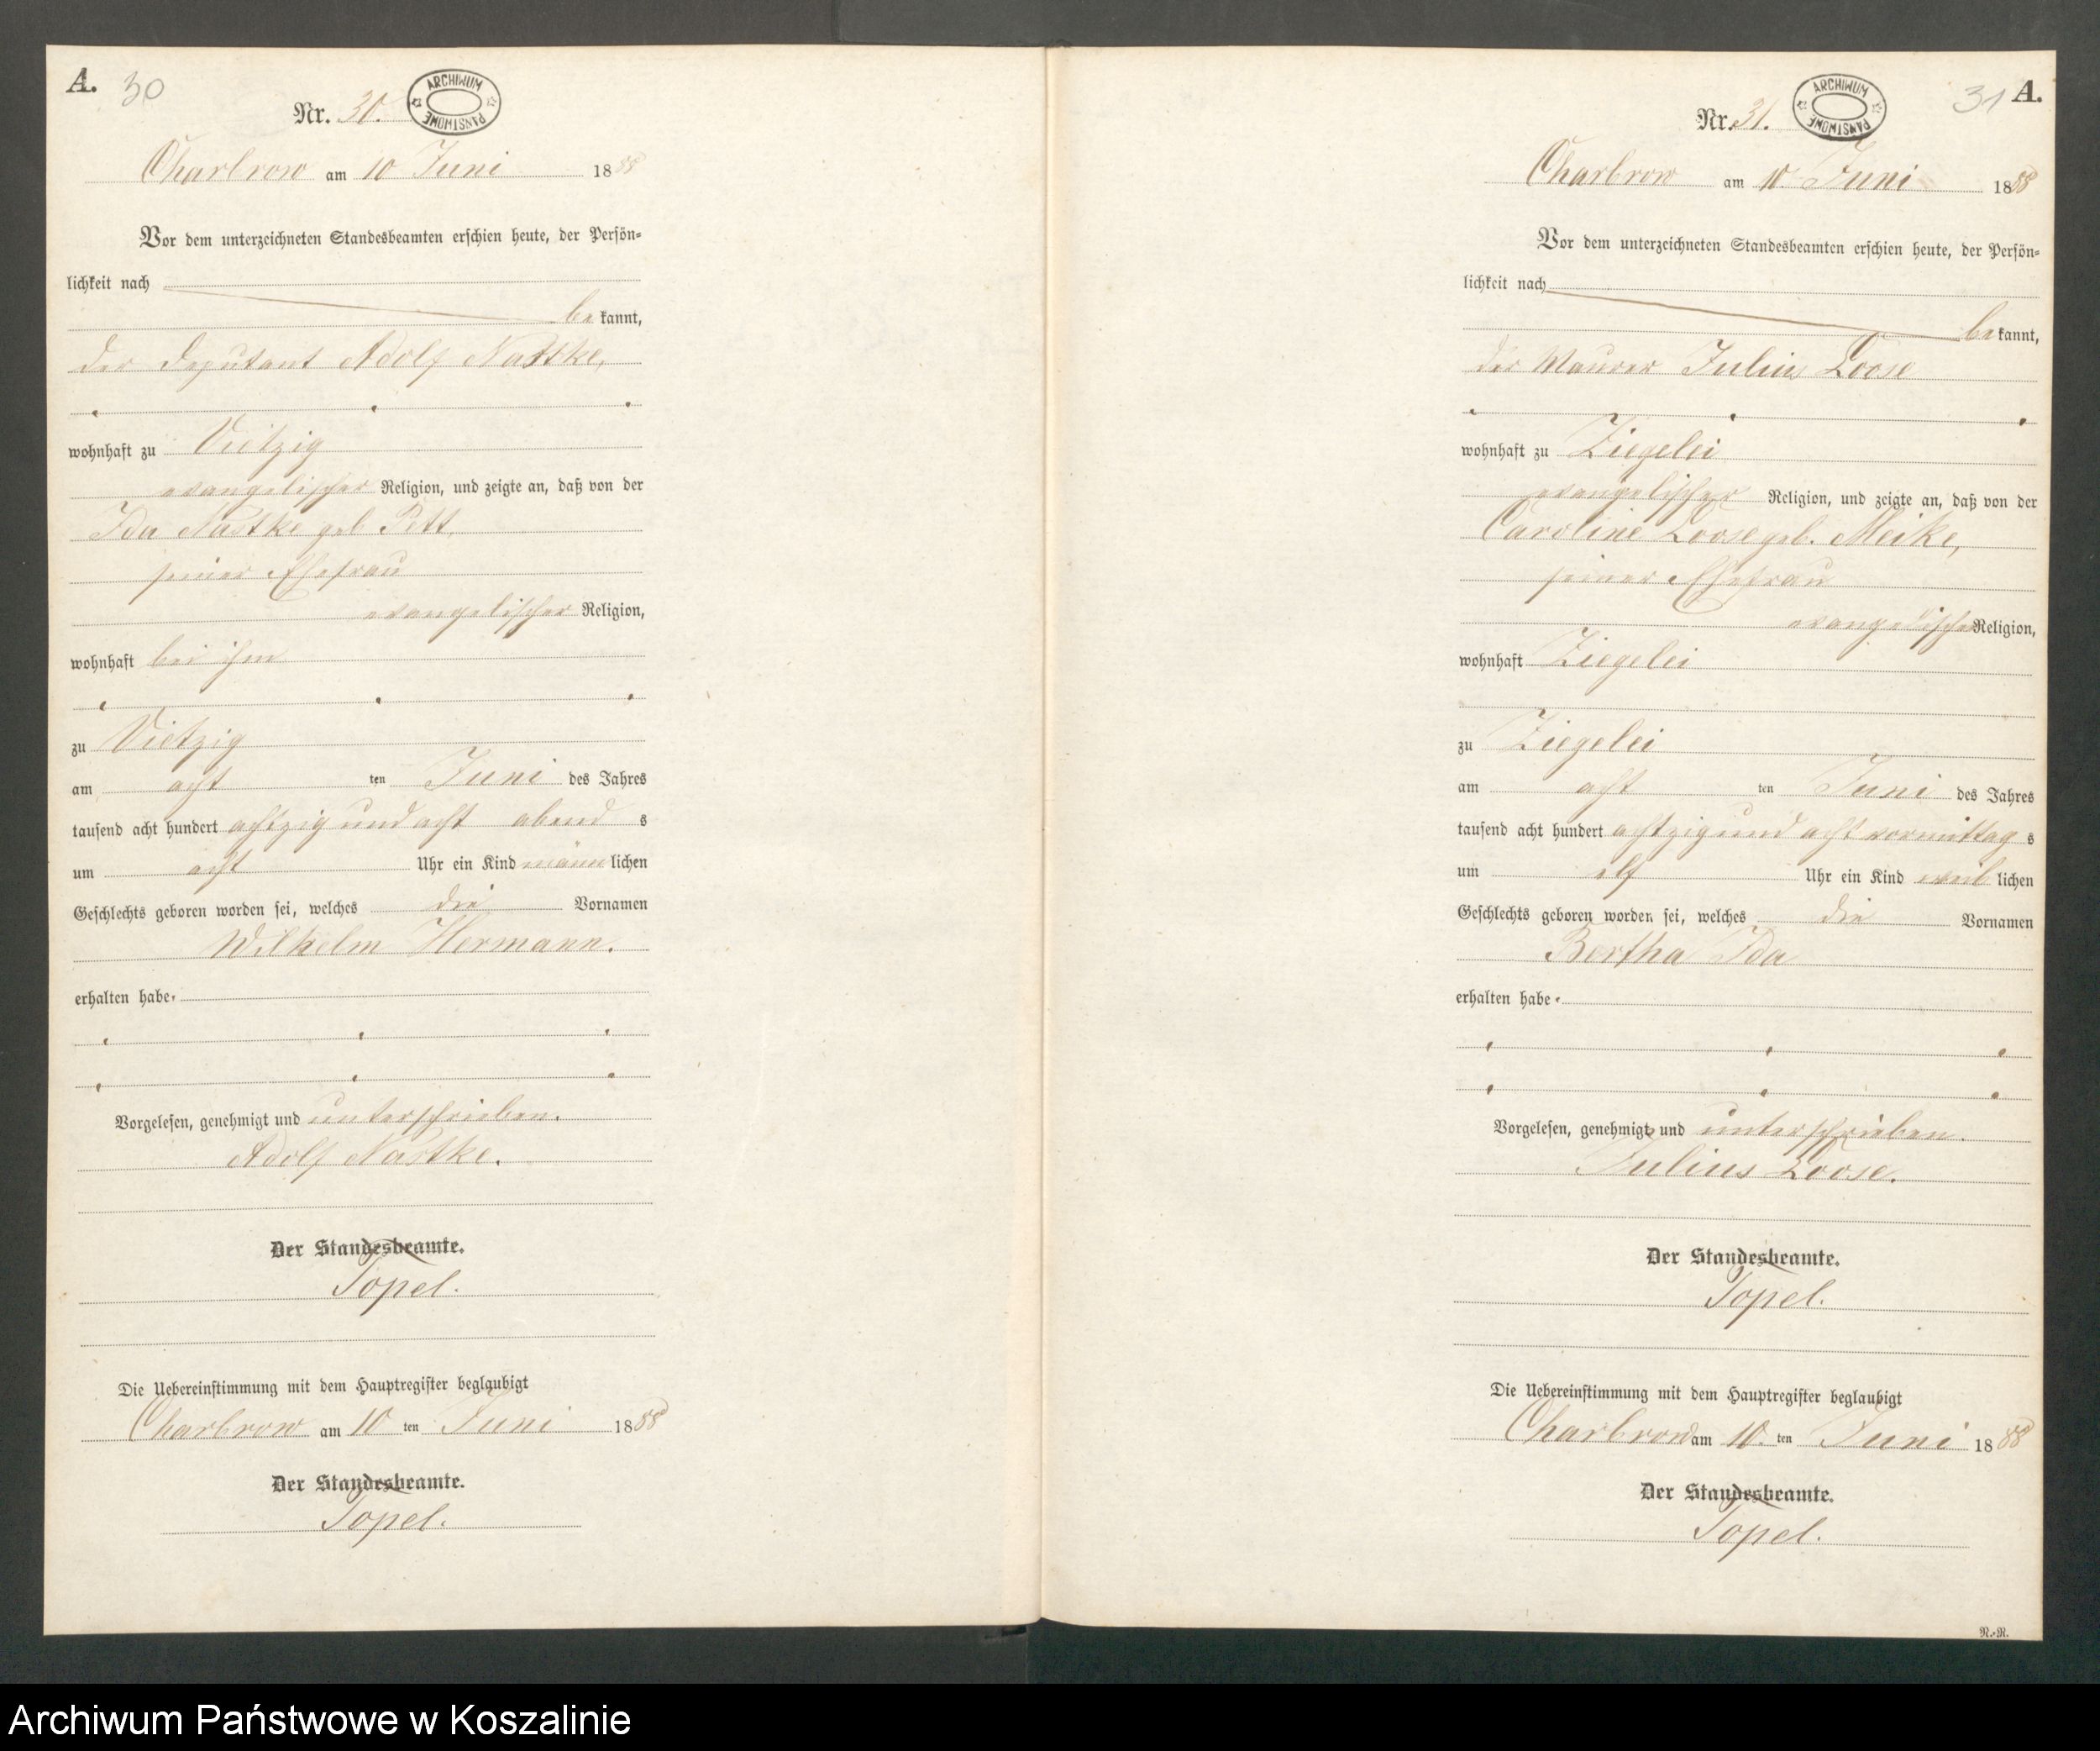 A. 30
Nr. 30.
ARCHIWUM PAŃSTWOWE
Charbrow am 10 Juni 1888
Vor dem unterzeichneten Standesbeamten erschien heute, der Persön-
lichkeit nach
bekannt,
der Deputant Adolf Nastke,
wohnhaft zu Vietzig
evangelischer Religion, und zeigte an, daß von der
Ida Nastke geb. Pett,
seiner Ehefrau
evangelischer Religion,
wohnhaft bei ihm
zu Vietzig
am acht ten Juni des Jahres
tausend acht hundert achtzig und acht abend s
um acht Uhr ein Kind männlichen
Geschlechts geboren worden sei, welches die Vornamen
Wilhelm Hermann.
erhalten habe.
Vorgelesen, genehmigt und unterschrieben.
Adolf Nastke.
Der Standesbeamte.
Topel.
Die Uebereinstimmung mit dem Hauptregister beglaubigt
Charbrow am 10 ten Juni 1888
Der Standesbeamte.
Topel.
31 A.
Nr. 31.
ARCHIWUM PAŃSTWOWE
Charbrow am 10 Juni 1888
Vor dem unterzeichneten Standesbeamten erschien heute, der Persön-
lichkeit nach
bekannt,
der Maurer Julius Loose
wohnhaft zu Ziegelei
evangelischer Religion, und zeigte an, daß von der
Caroline Loose geb. Meike,
seiner Ehefrau
evangelischer Religion,
wohnhaft Ziegelei
zu Ziegelei
am acht ten Juni des Jahres
tausend acht hundert achtzig und acht vormittag s
um elf Uhr ein Kind weiblichen
Geschlechts geboren worden sei, welches die Vornamen
Bertha Ida
erhalten habe.
Vorgelesen, genehmigt und unterschrieben.
Julius Loose.
Der Standesbeamte.
Topel.
Die Uebereinstimmung mit dem Hauptregister beglaubigt
Charbrow am 10. ten Juni 1888
Der Standesbeamte.
Topel.
R.-R.
Archiwum Państwowe w Koszalinie